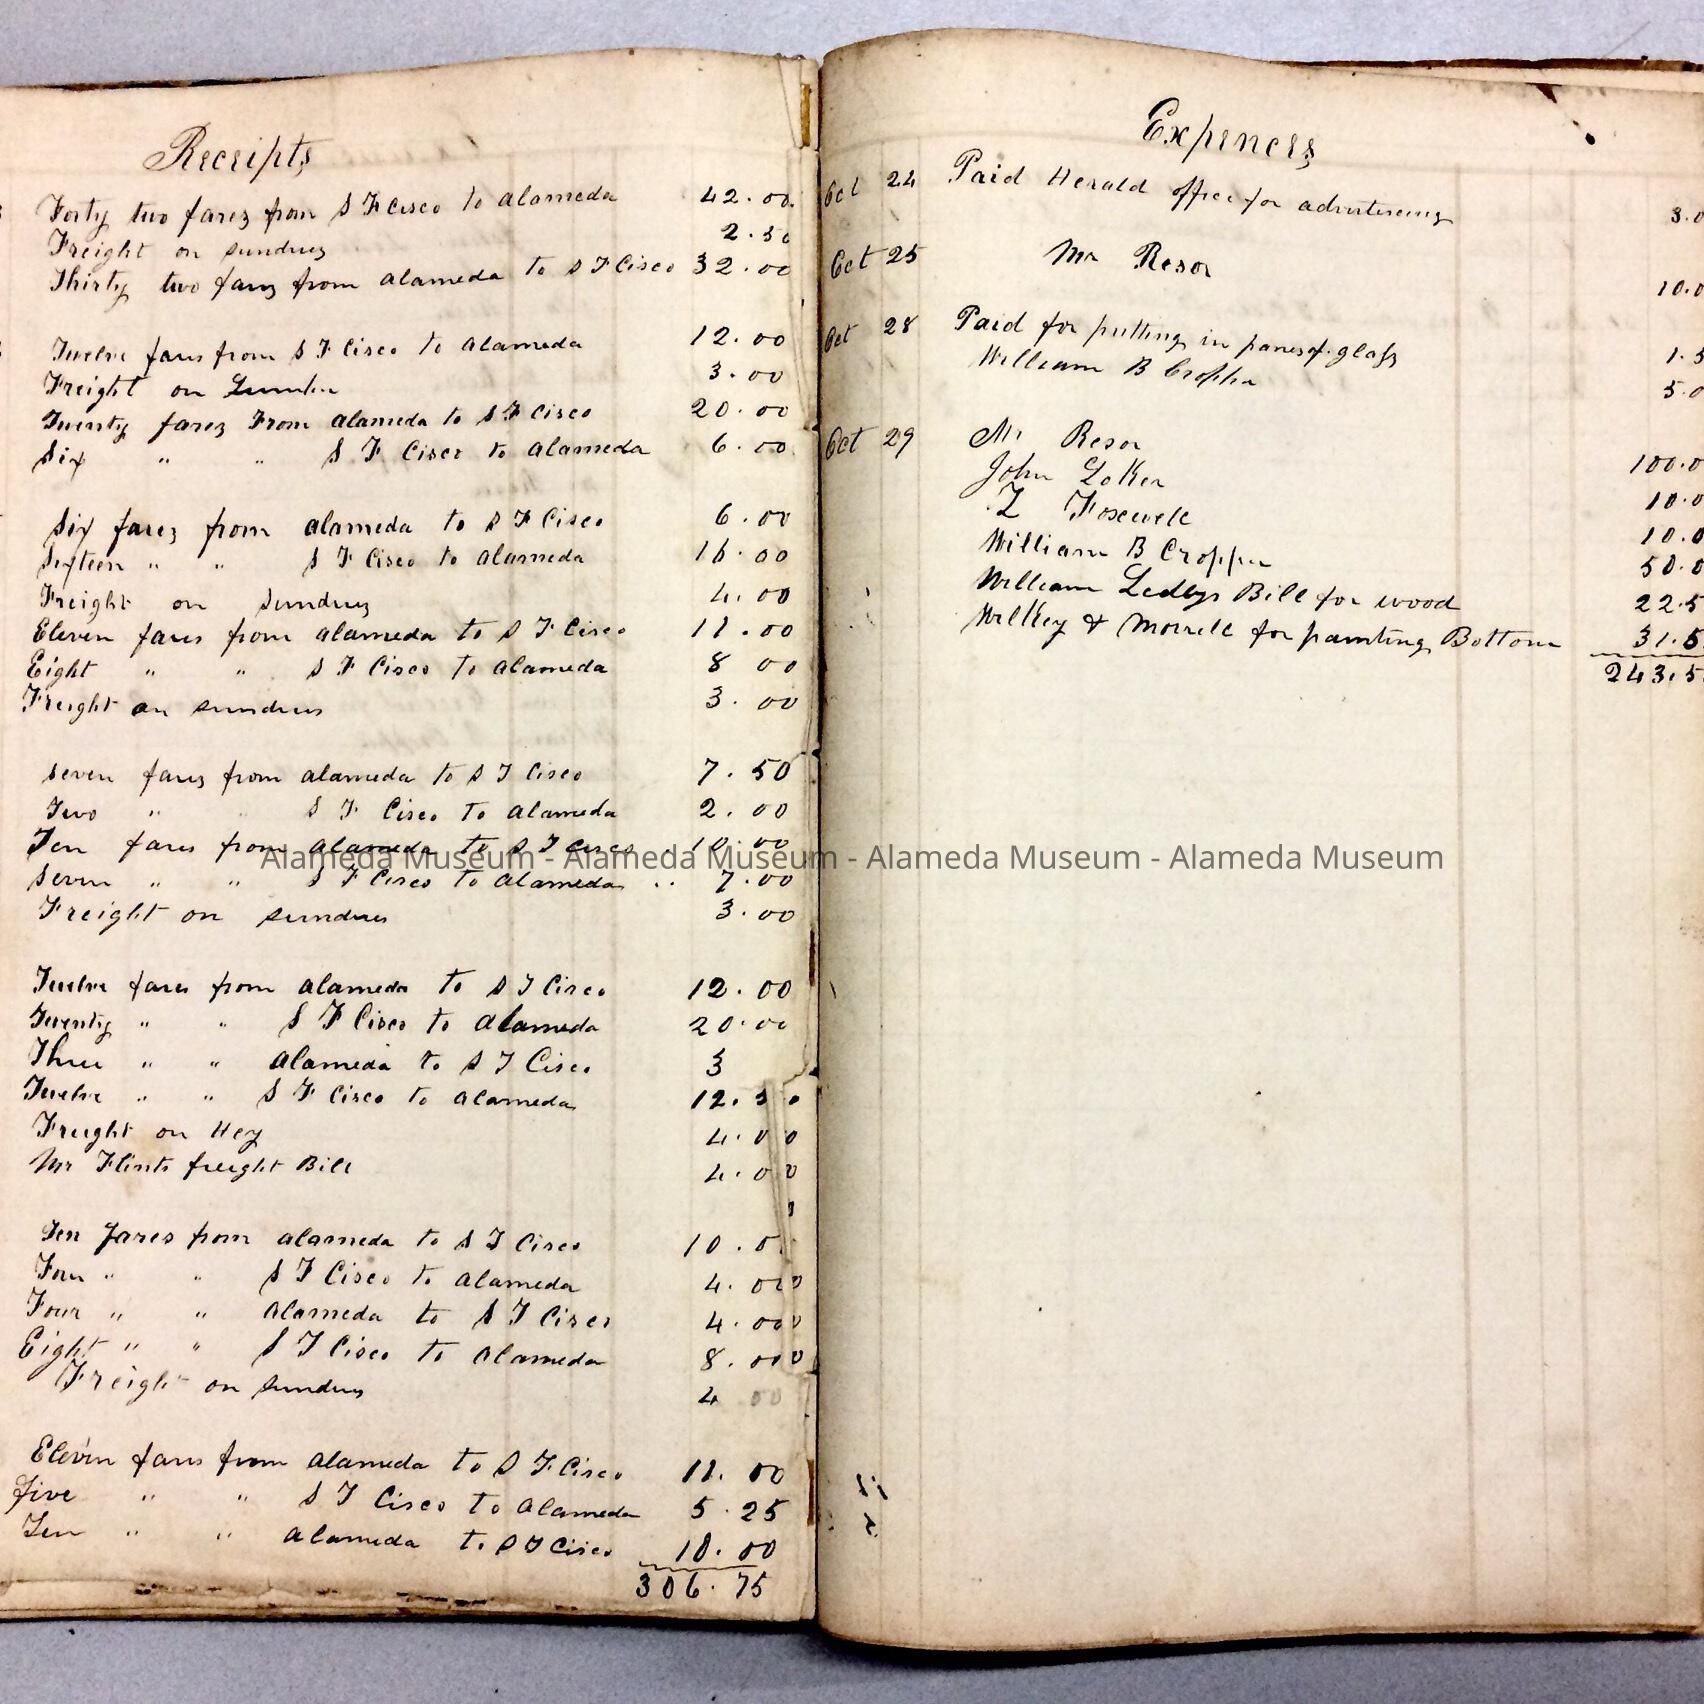 Receipts
Forty two fares from S F Cisco to Alameda 42.00
Freight on sundries 2.50
Thirty two fares from Alameda to S F Cisco 32.00
Twelve fares from S F Cisco to Alameda 12.00
Freight on Lumber 3.00
Twenty fares From Alameda to S F Cisco 20.00
Six " " S F Cisco to Alameda 6.00
Six fares from Alameda to S F Cisco 6.00
Sixteen " " S F Cisco to Alameda 16.00
Freight on sundries 4.00
Eleven fares from Alameda to S F Cisco 11.00
Eight " " S F Cisco to Alameda 8 00
Freight on sundries 3.00
Seven fares from Alameda to S F Cisco 7.50
Two " S F Cisco to Alameda 2.00
Ten fares from Alameda to S F Cisco 10.00
Seven " " S F Cisco to Alameda 7.00
Freight on sundries 3.00
Twelve fares from Alameda to S F Cisco 12.00
Twenty " " S F Cisco to Alameda 20.00
Three " " Alameda to S F Cisco 3
Twelve " " S F Cisco to Alameda 12.50
Freight on Hey 4.00
Mr Flints freight Bill 4.00
Ten fares from Alameda to S F Cisco 10.0
Four " " S F Cisco to Alameda 4.00
Four " " Alameda to S F Cisco 4.00
Eight " " S F Cisco to Alameda 8.00
Freight on sundries 4 00
Eleven fares from Alameda to S F Cisco 11.00
five " " S F Cisco to Alameda 5.25
Ten " " Alameda to S F Cisco 10.00
306.75
Expences
Oct 24 Paid Herald office for advertiseing 3.0
Oct 25 Mr Resor 10.0
Oct 28 Paid for putting in panes of glass 1.5
William B Cropper 5.0
Oct 29 Mr Resor 100.0
John Loker 10.0
Z Fosewell 10.0
William B Cropper 50.0
William Ledbys Bill for wood 22.5
Wilkey & Morrell for painting Bottom 31.5
243.5
Alameda Museum - Alameda Museum - Alameda Museum - Alameda Museum